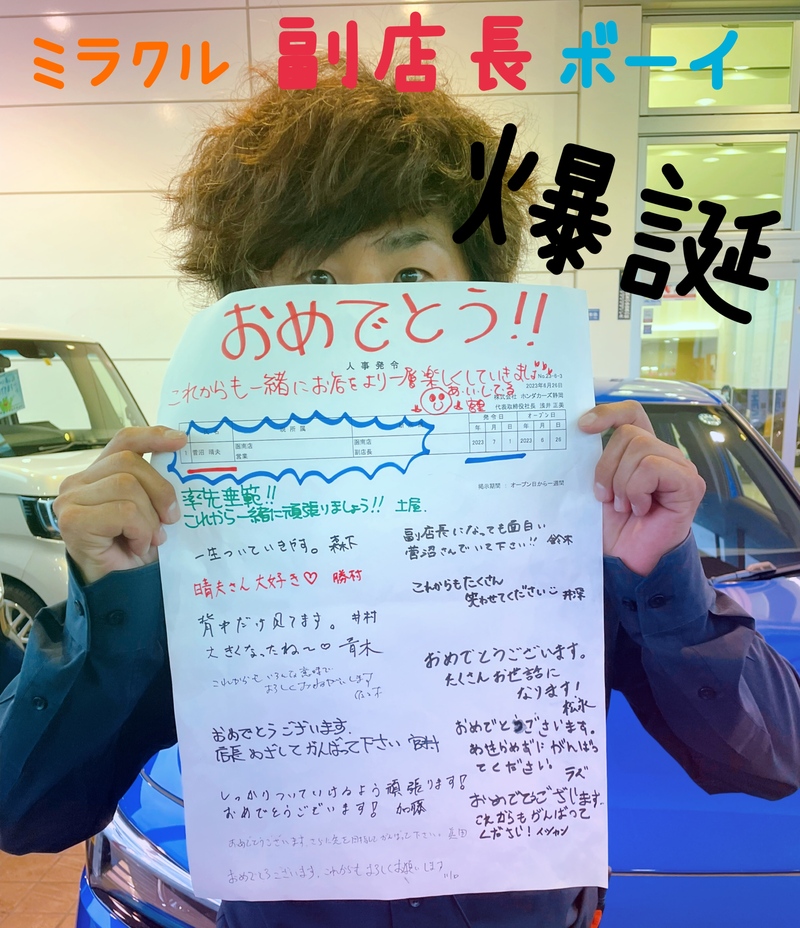 ミラクル 副店長 ボーイ
爆誕
おめでとう!!
人事発令
これからも一緒にお店をより一層楽しくしていきましょ
2023年6月26日
株式会社 ホンダカーズ静岡
代表取締役社長 浅井 正美
所属
発令日 オープン日
年 月 日 年 月 日
1 菅沼 晴夫 営業 副店長 2023 7 1 2023 6 26
掲示期間 : オープン日から一週間
率先垂範!!
これから一緒に頑張りましょう!! 土屋.
一生ついていきやす。 森下
晴夫さん大好き♡ 勝村
背中だけ見てます。 井村
大きくなったね〜♡ 青木
これからも
よろしくおねがいします
おめでとうございます.
店長めざしてがんばって下さい 宮村
しっかりついていけるよう頑張ります!
おめでとうございます! 加藤
おめでとうございます
おめでとうございます.これからもよろしくお願いします
副店長になっても面白い
菅沼さんでいて下さい!! 鈴木
これからもたくさん
笑わせてください 井深
おめでとうございます。
たくさんお世話に
なります!
松永
おめでとうございます。
あせらめずにがんばっ
てください。 ラベ
おめでとうございます.
これからもがんばって
ください! イヴァン